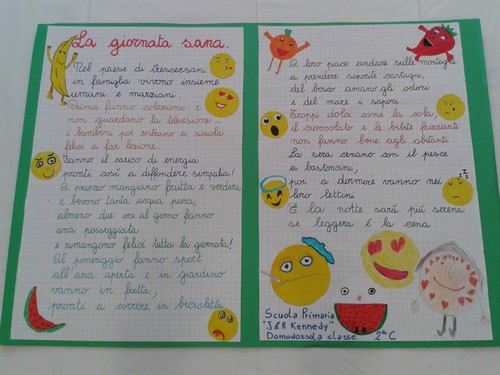 La giornata sana.
Nel paese di Crescersani
in famiglia vivono insieme
umani e marziani.
Prima fanno colazione e
non guardano la televisione...
i bambini poi entrano a scuola
felici a far lezione.
Fanno il carico di energia
pronti così a diffondere simpatia!
A pranzo mangiano frutta e verdura
e bevono tanta acqua pura,
almeno due ore al giorno fanno
una passeggiata
e rimangono felici tutta la giornata!
Al pomeriggio fanno sport
all'aria aperta e in giardino
vanno in fretta,
pronti a correre in bicicletta.
A loro piace andare sulle montagne
a prendere saporite castagne,
del bosco amano gli odori
e del mare i sapori.
Troppi dolci come la sola,
il cioccolato e le bibite frizzanti
non fanno bene agli abitanti.
La sera cenano con il pesce
a bastoncini,
poi a dormire vanno nei
loro lettini
E la notte sarà più serena
se leggera è la cena.
Scuola Primaria
"J&R Kennedy"
Domodossola classe 2ªC